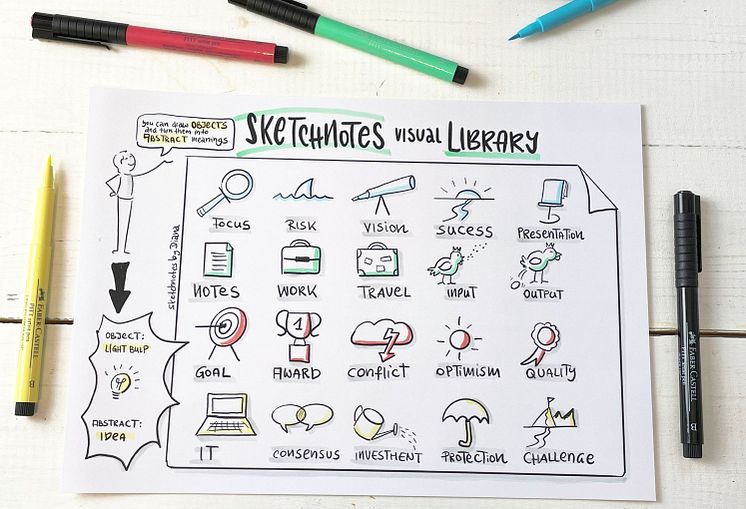 you can draw OBJECTS
and turn them into
ABSTRACT meanings
SKETCHNOTES visual LIBRARY
sketchnotes by Diana
FOCUS RISK VISION SUCESS PRESENTATION
NOTES WORK TRAVEL INPUT OUTPUT
GOAL AWARD CONFLICT OPTIMISM QUALITY
IT CONSENSUS INVESTMENT PROTECTION CHALLENGE
OBJECT:
LIGHT BULP
ABSTRACT:
IDEA
FABER-CASTELL
B
FABER-CASTELL
B